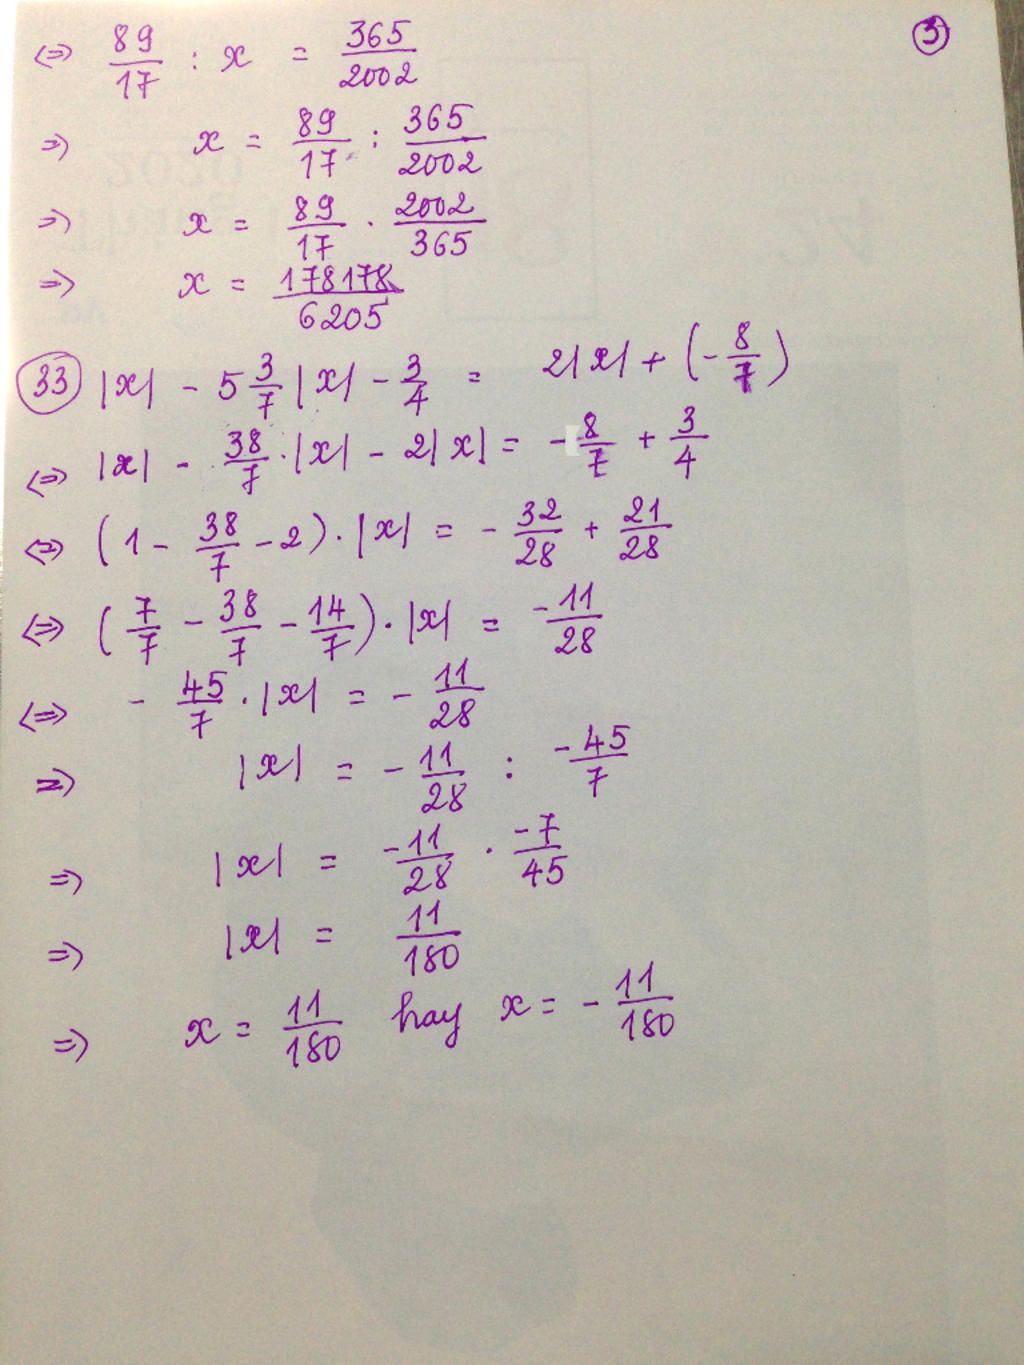 ③
⇔ 89/17 : x = 365/2002
⇒ x = 89/17 : 365/2002
⇒ x = 89/17 . 2002/365
⇒ x = 178178/6205
33 |x| - 5 3/7 |x| - 3/4 = 2|x| + (-8/7)
⇔ |x| - 38/7 . |x| - 2|x| = -8/7 + 3/4
⇔ (1 - 38/7 - 2) . |x| = - 32/28 + 21/28
⇔ (7/7 - 38/7 - 14/7) . |x| = -11/28
⇔ - 45/7 . |x| = - 11/28
⇒ |x| = - 11/28 : -45/7
⇒ |x| = -11/28 . -7/45
⇒ |x| = 11/180
⇒ x = 11/180 hay x = - 11/180